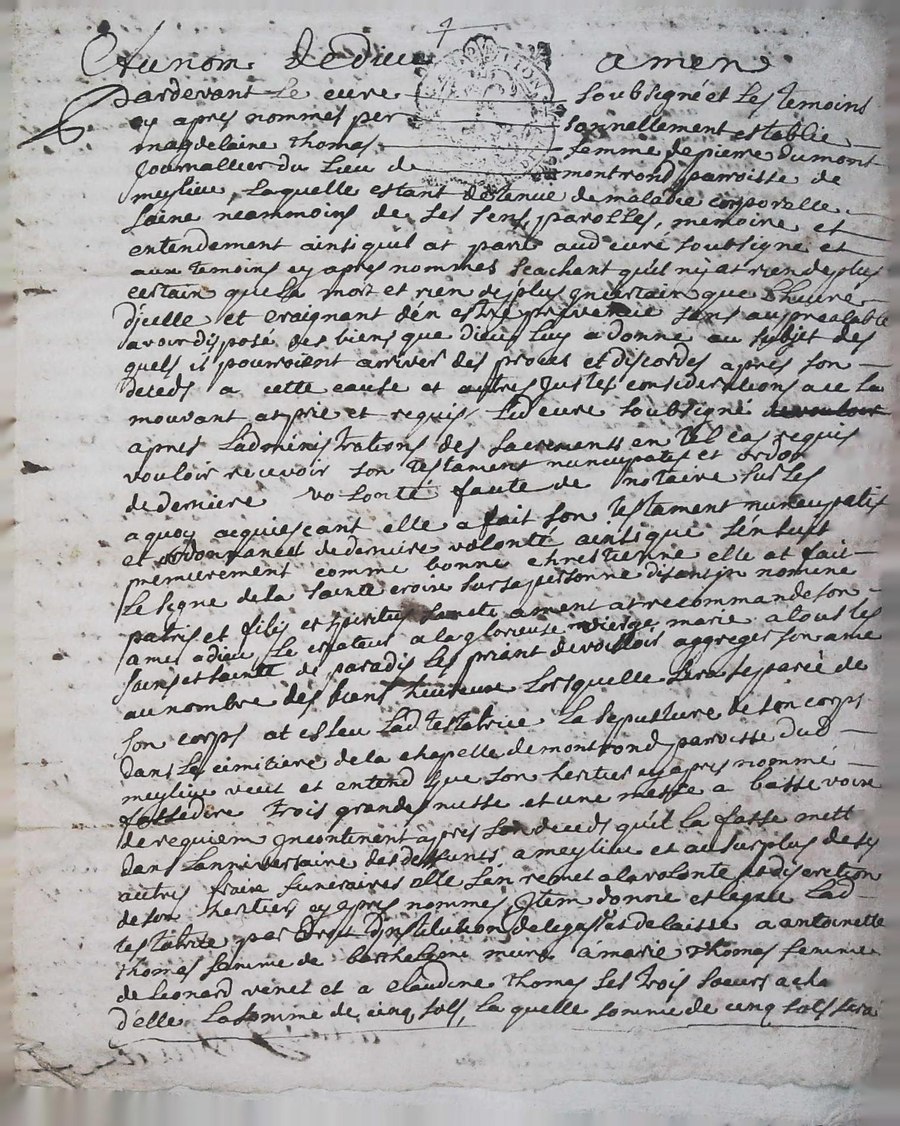 Au nom de dieu amen
pardevant Le curé soubsigné et Les temoins
cy apres nommes per sonnellement establie
magdelaine thomas femme de pierre dumont
Journallier du Lieu de montrond parroisse de
meylieu, Laquelle estant detenue de maladie corporelle
saine neammoins de ses sens, parolles, memoire et
entendement ainsi quil at paru aud curé soubsigné et
aux temoins cy apres nommes scachent quil ny at rien de plus
certain que La mort et rien de plus Incertain que L'heure
d'icelle et craignant den estre prevenue sans au prealable
avoir disposé des biens que dieu Luy a donné au subjet des
quels il pourroient arriver des proces et discordes apres son
deceds a cette cause et autres Justes considerations a ce La
mouvant at prié et requis Led curé soubsigné
apres L'administrations des sacrements en tel cas requis
vouloir recevoir son testament nuncupatif et ordon
de derniere volonté faute de notaire sur Les
a quoy acquiescant elle a fait son testament nuncupatif
et ordonnance de derniere volonté ainsi que s'ensuit
premierement comme bonne chrestienne elle at fait
Le signe de la sainte croix sur sa personne disant in nomine
patris et filii et spiritus sancti ament at recommandé son
ame a dieu Le createur a la glorieuse vierge marie a tous les
sains et sainte de paradis Les priant de vouloir aggreger son ame
au nombre des biens heureuse Lorsquelle sera separée de
son corps at esleu Lad testatrice La sepulture de son corps
dans Le cimitiere de la chapelle de montrond parroisse dud
meylieu veut et entend que son heritier cy apres nommé
fasse dire trois grandes messe et une messe a basse voixe
de requiem Incontinent apres son deceds qu'il la fasse mett
dans Lanniversaire des deffunts a meylieu et au surplus de sy
autres fraix funeraires elle s'en remet a la volonté et discretion
de son heritier cy apres nommes, Item donne et legue Lad
testatrice par droit d'institution de legas et delaisse a antoinette
thomas femme de barthelemi a marie thomas femme
de Leonard venet et a claudine thomas ses trois soeurs a cha
d'elle La somme de cinq sols, La quelle somme de cinq sols sera